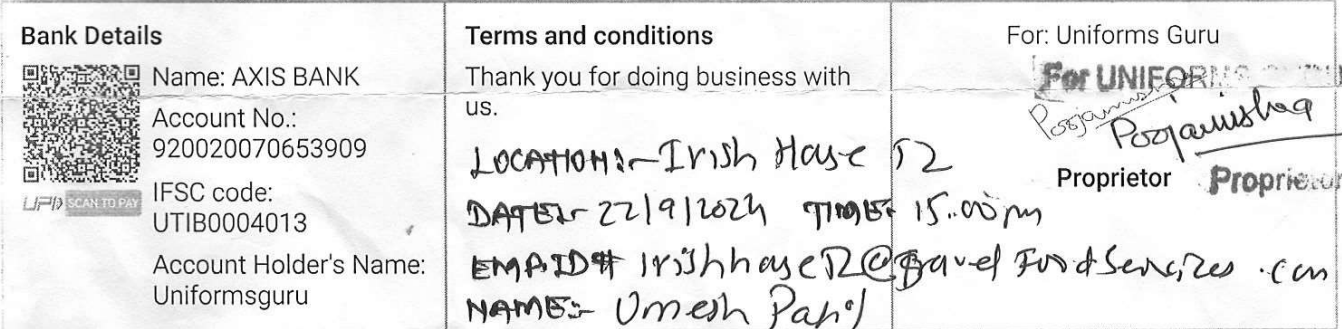 Bank Details
Name: AXIS BANK
Account No.:
920020070653909
IFSC code:
UTIB0004013
Account Holder's Name:
Uniformsguru
UPI SCAN TO PAY
Terms and conditions
Thank you for doing business with
us.
LOCATION:- Irish House T2
DATE:- 22/9/2024 TIME:- 15:00pm
EMAID# irishhouseT2@travelFoodServices.com
NAME:- Umesh
For: Uniforms Guru
For UNIFORMS
Poojamishra
Poojamishra
Proprietor
Proprietor